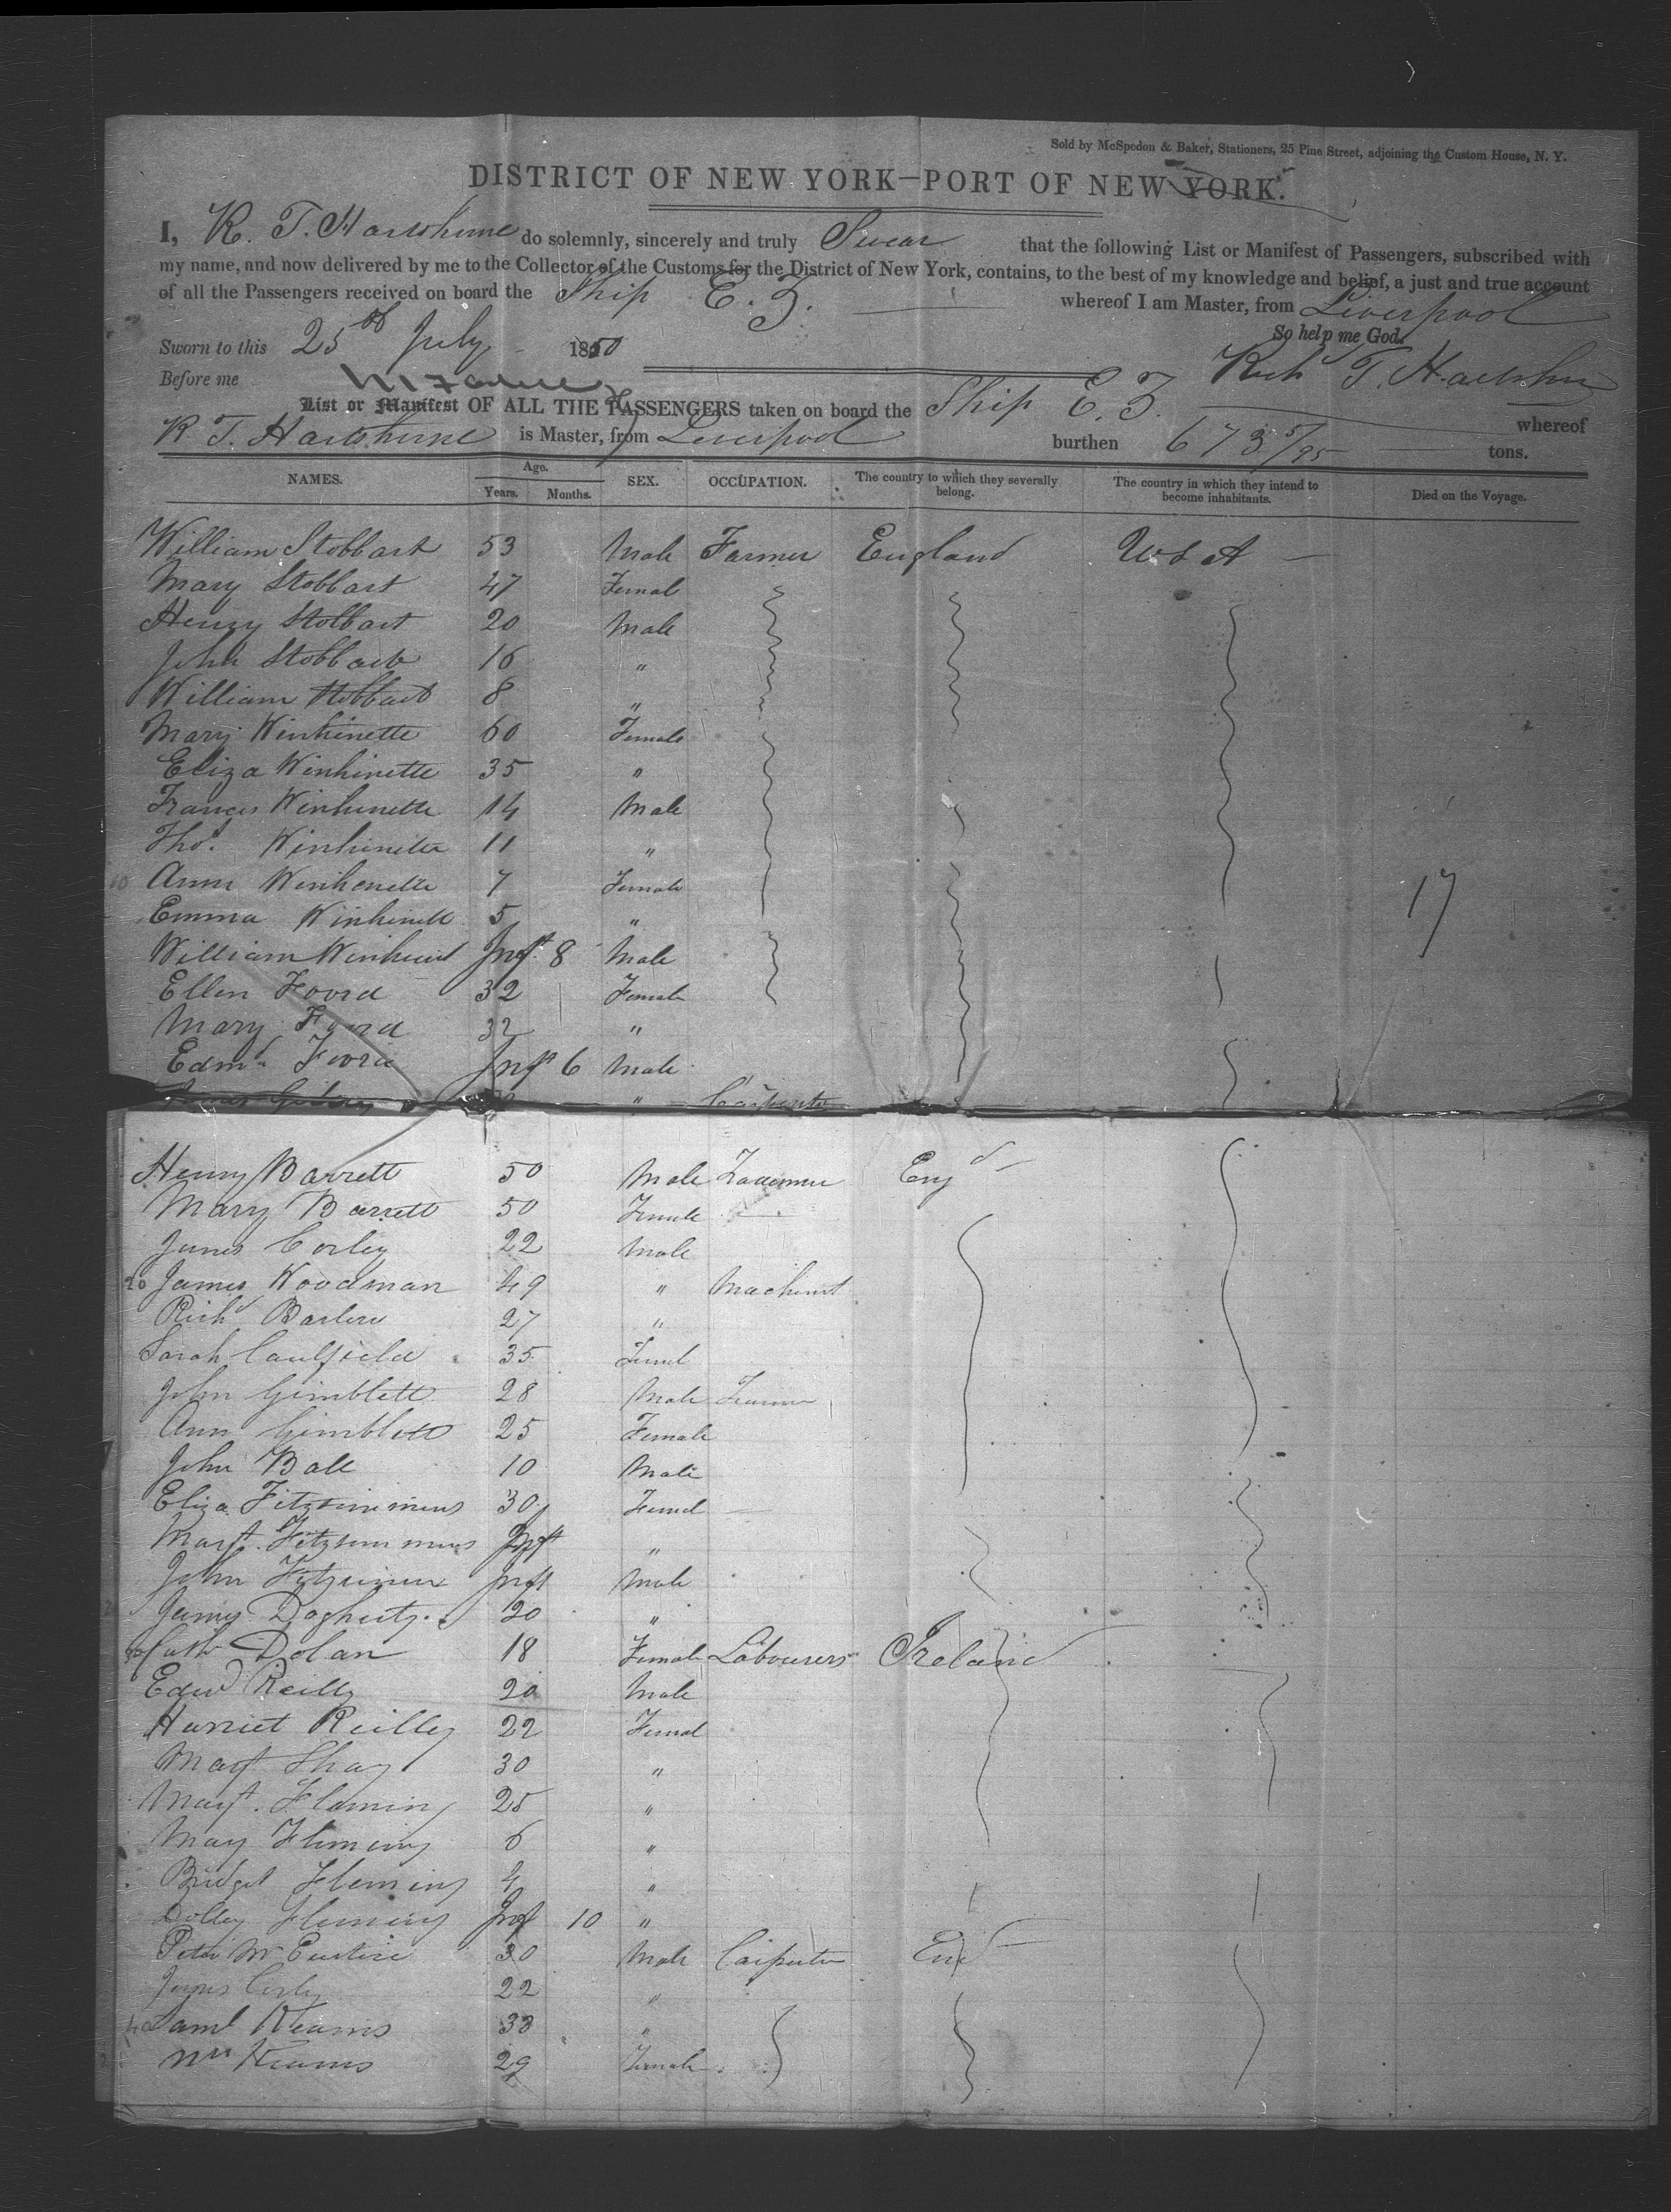 Sold by McSpedon & Baker, Stationers, 25 Pine Street, adjoining the Custom House, N. Y.
DISTRICT OF NEW YORK—PORT OF NEW YORK.
I, R. T. Hartshorne do solemnly, sincerely and truly Swear that the following List or Manifest of Passengers, subscribed with
my name, and now delivered by me to the Collector of the Customs for the District of New York, contains, to the best of my knowledge and belief, a just and true account
of all the Passengers received on board the Ship E. Z. whereof I am Master, from Liverpool
So help me God.
Sworn to this 25th July 1850
Richd T. Hartshorne
Before me
List or Manifest OF ALL THE PASSENGERS taken on board the Ship E. Z. whereof
R. T. Hartshorne is Master, from Liverpool burthen 673 5/95 tons.
NAMES. Age. Years. Months. SEX. OCCUPATION. The country to which they severally belong. The country in which they intend to become inhabitants. Died on the Voyage.
William Stobbart 53 Male Farmer England U S A
Mary Stobbart 47 Female
Henry Stobbart 20 Male
John Stobbart 16 "
William Stobbart 8 "
Mary Winhinette 60 Female
Eliza Winhinette 35 "
Frances Winhinette 14 Male
Thos. Winhinette 11 "
10 Ann Winhenette 7 Female 17
Emma Winhinett 5 "
William Winhinett Inft. 8 Male
Ellen Foord 32 Female
Mary Foord 32 "
Edmd. Foord Inft 6 Male
James " Carpenter
Henry Barrett 50 Male Farmer Engd
Mary Barrett 50 Female
James Corley 22 Male
20 James Woodman 49 " Machinist
Richd Barlow 27 "
Sarah Caulfield 35 Femal
John Gimblett 28 Male Farmer
Ann Gimblett 25 Female
John Ball 10 Male
Eliza Fitzsimmins 30 Femal
Margt. Fitzsimmins Inft "
John Fitzsimmins Inft Male
James Dogherty 20 "
30 Cath Dolan 18 Female Labourers Ireland
Edwd Reilly 20 Male
Harriet Reilly 22 Femal
Margt Shay 30 "
Margt. Fleming 25 "
Mary Fleming 6 "
Bridget Fleming 4 "
Dolley Fleming Inft 10 "
Peter 30 Male Carpenter End
James Corley 22 "
40 Saml Keams 33 "
Mrs Keams 29 Female